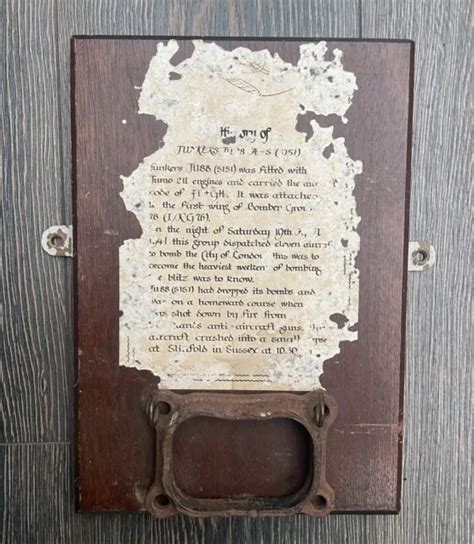 History of
JUNKERS JU 88 A-5 (5151)
Junkers JU88 (5151) was fitted with
Jumo 211 engines and carried the air
code of F1+GH. It was attached
to the First wing of Bomber Group
76 (I/KG76).
On the night of Saturday 10th
1941 this group dispatched eleven aircraft
to bomb the City of London this was to
become the heaviest welter of bombing
the blitz was to know.
JU88 (5151) had dropped its bombs and
was on a homeward course when
was shot down by fur from
anti-aircraft guns.
aircraft crashed into a small
at Slinfold in Sussex at 10.30